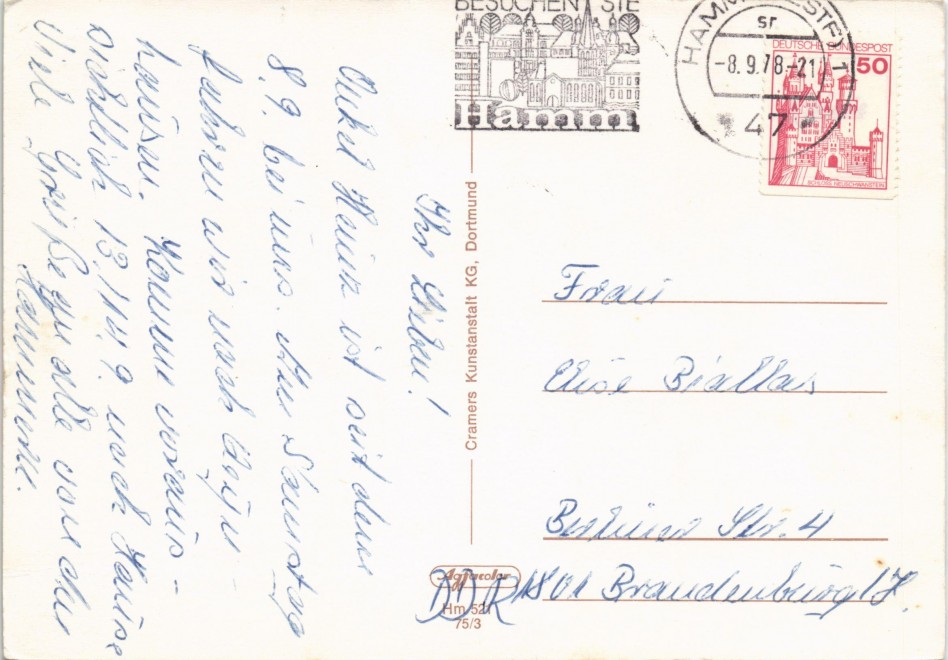 Ihr Lieben!
Onkel Heinz ist seit dem
8.9. bei uns. Am Samstag
fahren wir nach
hausen. Komme voraus-
sichtlich 13./14.9. nach Hause
Viele Grüße an alle von der
BESUCHEN SIE
Hamm
HAMM (WESTF) 1
sr
-8.9.78-21
47
DEUTSCHE BUNDESPOST
50
SCHLOSS NEUSCHWANSTEIN
Cramers Kunstanstalt KG, Dortmund
Frau
Elise Biallas
Berliner Str. 4
DDR 1801 Brandenburg/H.
Agfacolor
Hm 521
75/3